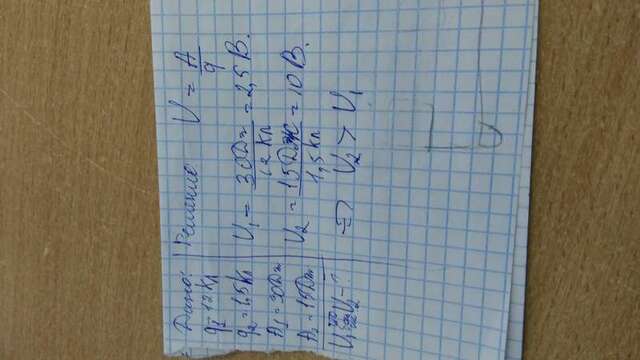 Дано:
q1 = 12 Кл
q2 = 1,5 Кл
A1 = 30 Дж
A2 = 15 Дж
U1 U2 - ?
Решение U = A/q
U1 = 30Дж/12 Кл = 2,5 В.
U2 = 15Дж/1,5 Кл = 10 В.
⇒ U2 > U1